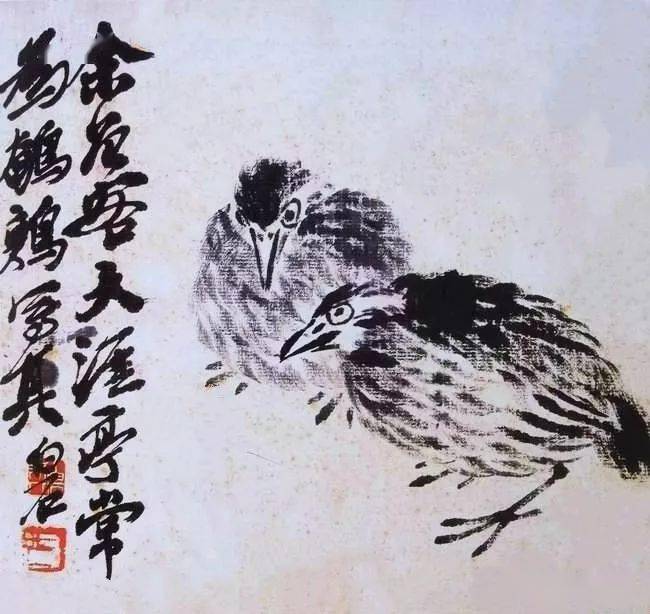 余客天涯亭常
為鵪鶉寫真
白石